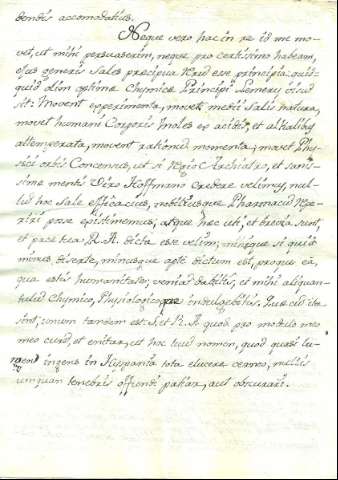 dendis accomodatius.
Neque vero hac in re id me mo-
vet, ut mihi persuaserim, neque pro certissimo habeam,
ejus generis Sales præcipua esse principia: quid-
quid olim optimæ Chymicæ Principi Lemery visum
sit: Movent experimenta, movet medii Salis natura,
movet humani Corporis moles ex acidis, et alkalibus
attemperata, movent rationum momenta; movet Phy-
sici orbis Concensus, ut si Regio Archiatro, et sanis-
simæ mentis Viro Hoffmano credere velimus, nul-
lud hoc sale efficacius, nobiliusque Pharmacum
posse existimemus; atque hæc uti, et brevia sunt,
et pace tua R. A. dicta esse velim; minusque si quid
minus diserte, minusque apte dictum est, proque ea,
qua estis humanitate; veniam dabitis, et mihi aliquan-
tulum Chymico, Physiologicoque indulgebitis. Quæ cum ita
sint, unum tandem est S. et R. A. quod pro modulo meo
meo curem, et enitar, ut hoc tuum nomen, quod quasi lu-
men ingens in Hispania tota elucere cernos, nullis
unquam tenebris offundi patiar, aut obscurari.